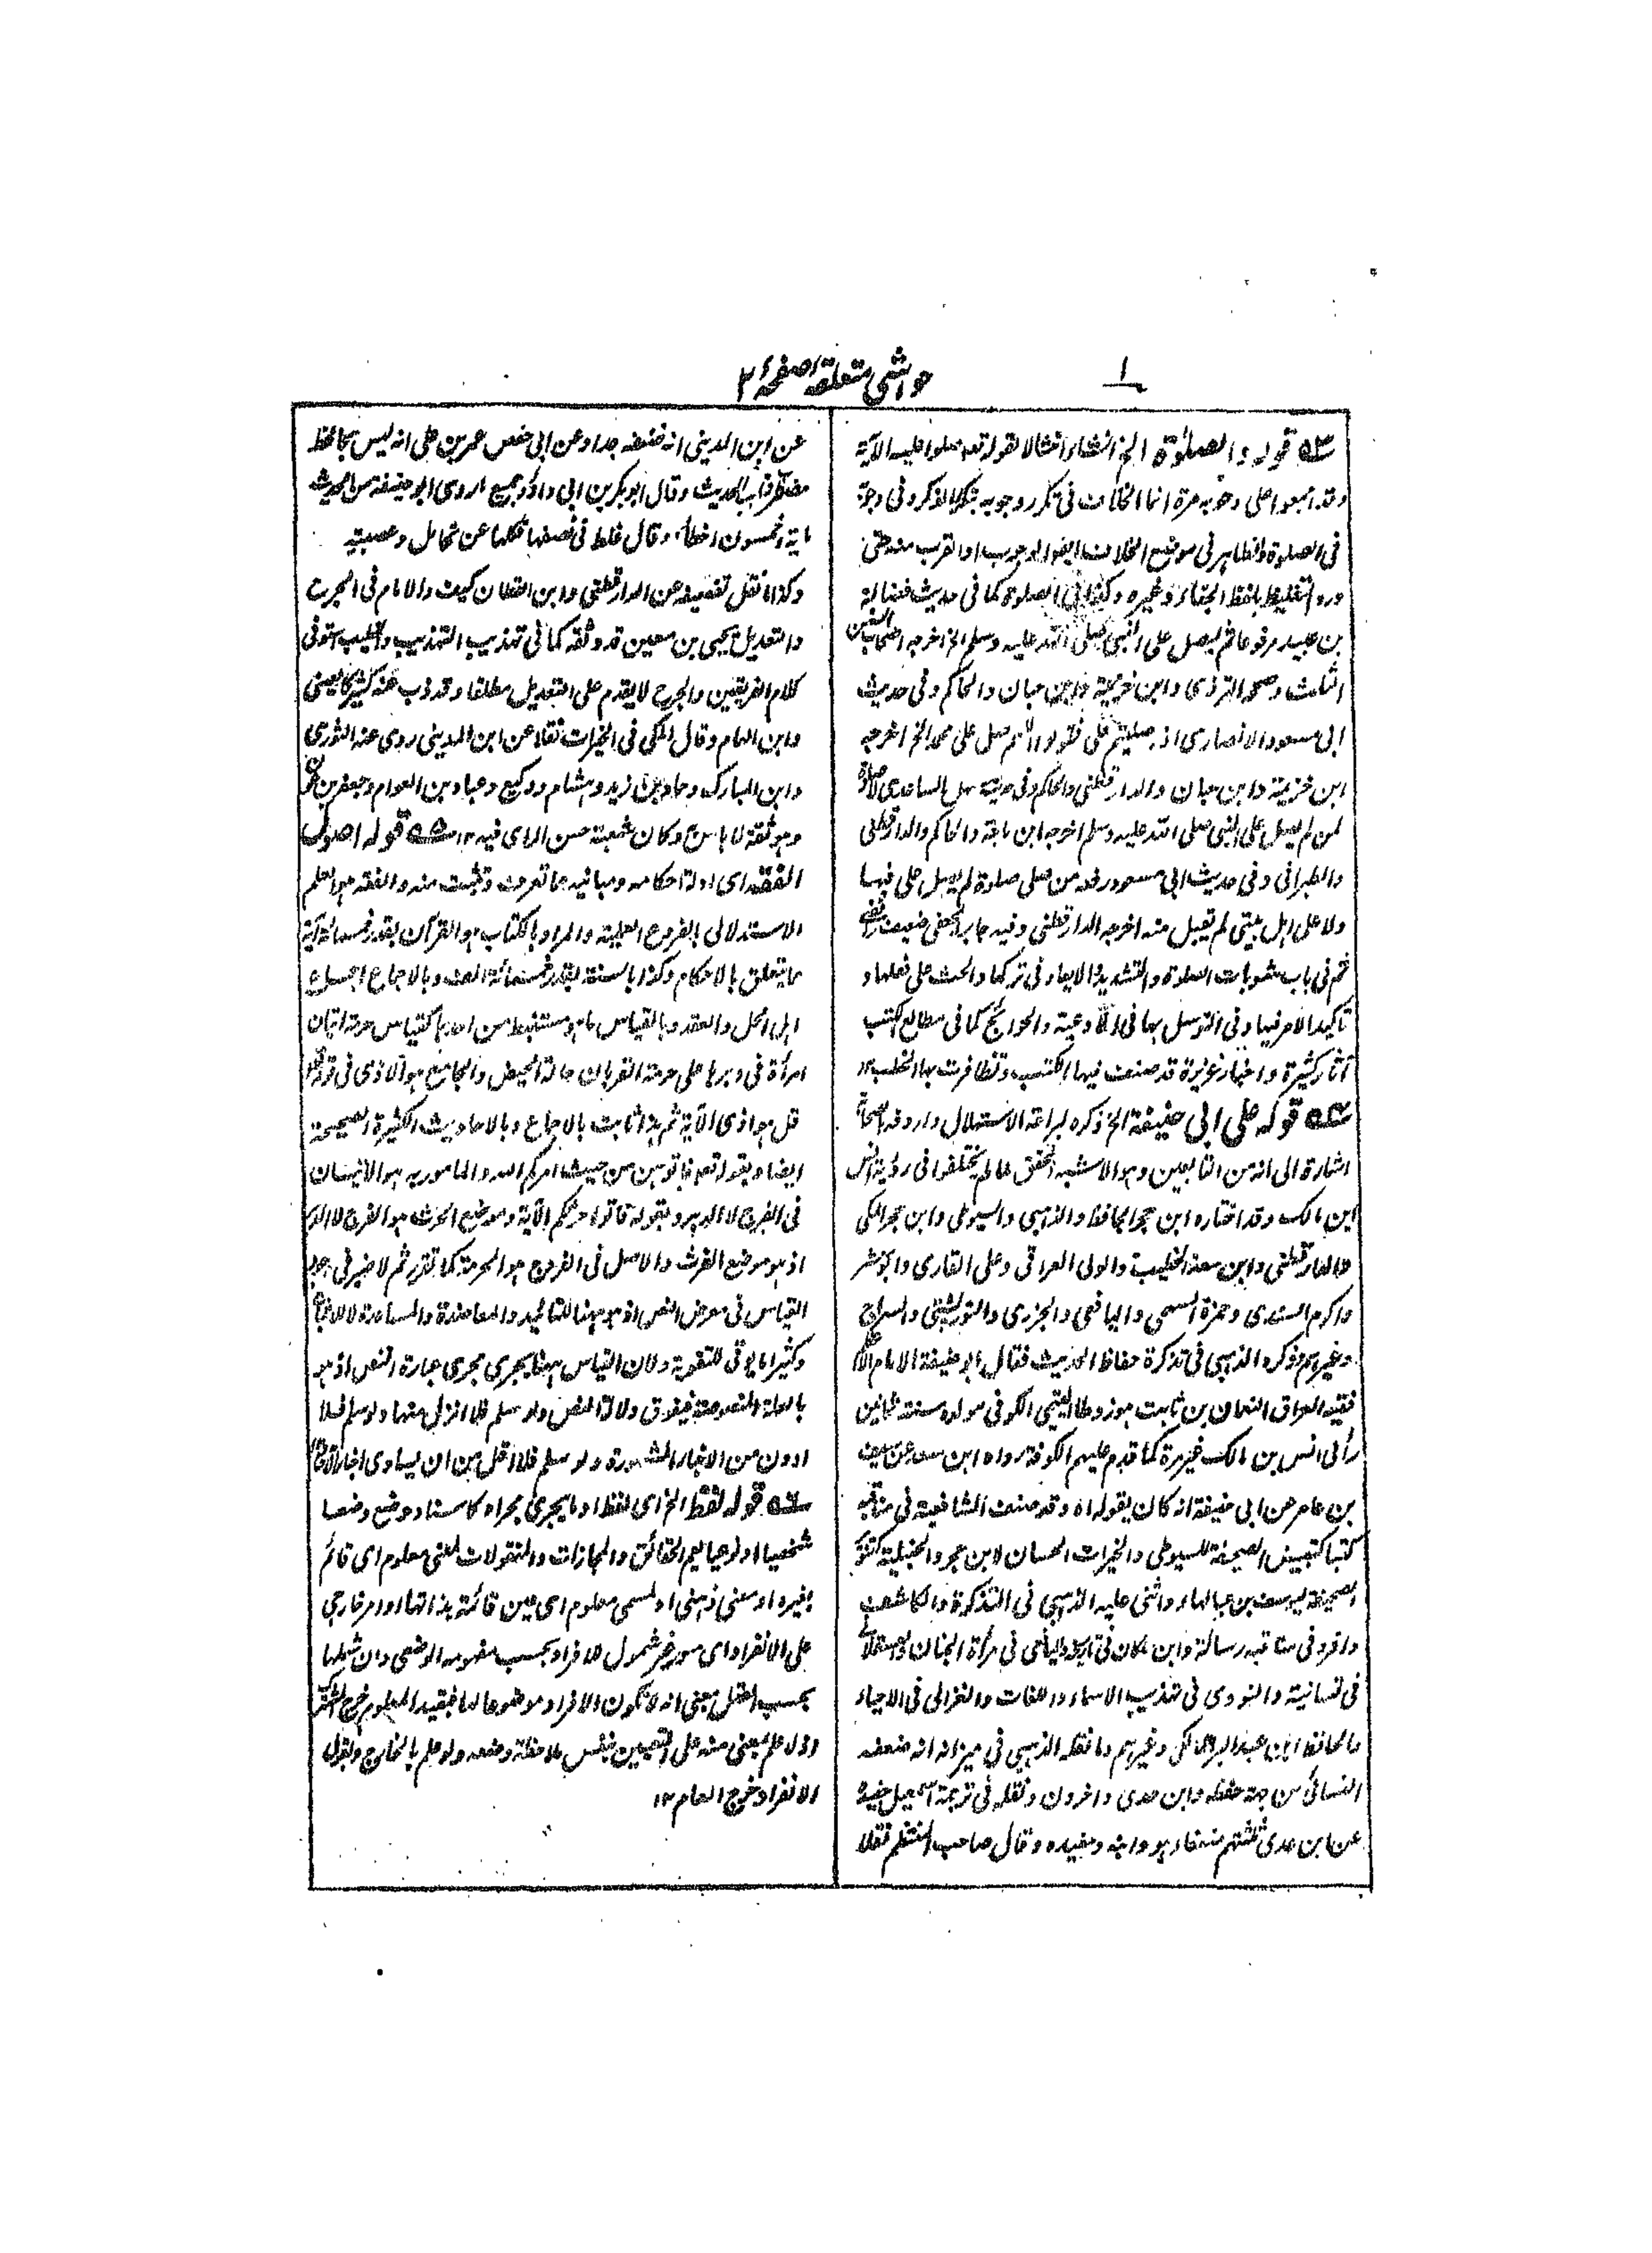 ١
حواشی متعلقہ صفحہ ٢
قوله والصلوة الخ انشاء امتثالا لقوله تعہ صلوا علیہ الآیة
وقد اجمعوا علی وجوبہ مرة انما الخلاف فی تکرر وجوبہ بتکرر الذکر وفی وجوبہ
فی الصلوة والظاہر فی موضع الخلاف ایضا الوجوب او القرب منہ حتی
ورد التغلیظ بلفظ الجفاء وغیرہ وکذا فی الصلوة کما فی حدیث فضالة
بن عبید مرفوعا ثم لیصل علی النبی صلی اللہ علیہ وسلم الخ اخرجہ اصحاب السنن
الثلث وصححہ الترمذی وابن خزیمة وابن حبان والحاکم وفی حدیث
ابی مسعود الانصاری اذ صلیتم علی فقولوا اللہم صل علی محمد الخ اخرجہ
ابن خزیمة وابن حبان والدارقطنی والحاکم وفی حدیث سہل الساعدی لا صلوة
لمن لم یصل علی النبی صلی اللہ علیہ وسلم اخرجہ ابن ماجة والحاکم والدارقطنی
والطبرانی وفی حدیث ابی مسعود رفعہ من صلی صلاة لم یصل علی فیہا
ولا علی اہل بیتی لم تقبل منہ اخرجہ الدارقطنی وفیہ جابر الجعفی ضعیف رافضی
ثم فی باب مثوبات الصلوة والتشدید والایعاد فی ترکہا والحث علی فعلہا و
تاکید الامر فیہا وفی التوسل بہا فی الادعیة والحوائج کما فی مطالع الکتب
آثار کثیرة واخبار غزیرة قد صنفت فیہا الکتب وتظافرت بہا الخطب ١٢
قوله علی ابی حنیفة الخ ذکرہ لبراعة الاستہلال واردفہ
اشارة الی انہ من التابعین وہو الاشبہ المحقق لما لم یختلفوا فی رؤیة انس
ابن مالک وقد اختارہ ابن حجر الحافظ والذہبی والسیوطی وابن حجر المکی
والدارقطنی وابن سعد والخطیب والولی العراقی وعلی القاری وابو معشر
واکرم السندی وحمزة السہمی والیافعی والجزری والتوربشتی والسراج
وغیرہم وذکرہ الذہبی فی تذکرة حفاظ الحدیث فقال ابو حنیفة الامام الاعظم
فقیہ العراق النعمان بن ثابت بن زوطا التیمی الکوفی مولدہ سنة ثمانین
رأی انس بن مالک غیر مرة لما قدم علیہم الکوفة رواہ ابن سعد عن سیف
بن جابر عن ابی حنیفة انہ کان یقولہ اہ وقد صنف الشافعیة فی مناقبہ
کتبا کتبییض الصحیفة للسیوطی والخیرات الحسان لابن حجر والحنبلیة کتنویر
الصحیفة لیوسف بن عبد الہاد واثنی علیہ الذہبی فی التذکرة والکاشف
وافرد فی مناقبہ رسالة وابن خلکان فی تاریخہ والیافعی فی مرأة الجنان والعسقلانی
فی لسانیة والنووی فی تہذیب الاسماء واللغات والغزالی فی الاحیاء
والحافظ ابن عبد البر المالکی وغیرہم وما نقلہ الذہبی فی میزانہ انہ ضعفہ
النسائی من جہة حفظہ وابن عدی واخرون ونقلہ فی ترجمة اسمعیل حفیدہ
عن ابن عدی ثلثتہم ضعفاء ہو وابنہ وحفیدہ وقال صاحب المنتظم نقلا
عن ابن المدینی انہ ضعفہ جدا وعن ابی حفص عمر بن علی انہ لیس بحافظ
مضطرب الحدیث وقال ابو بکر بن ابی داؤد جمیع ما روی ابو حنیفة من الحدیث
مایة وخمسون اخطأ وقال غلط فی نصفہا فکلہا عن تحامل وعصبیة
وکذا ما نقل تضعیفہ عن الدارقطنی وابن القطان کیف والامام فی الجرح
والتعدیل یحیی بن معین قد وثقہ کما فی تہذیب التہذیب والخطیب استوفی
کلام الفریقین والجرح لا یقدم علی التعدیل مطلقا وقد ذب عنہ کثیر کالعینی
وابن الہمام وقال المکی فی الخیرات نقلا عن ابن المدینی روی عنہ الثوری
وابن المبارک وحماد بن زید وہشام ووکیع وعباد بن العوام وجعفر بن عون
وہو ثقة لا باس بہ وکان شعبة حسن الرای فیہ ١٢ قوله اصول
الفقہ ای ادلة احکامہ ومبانیہ مما تعرف وتثبت منہ والفقہ ہو العلم
الاستدلالی بالفروع العملیة والمراد بالکتاب ہو القرآن بقدر خمسمائة آیة
مما یتعلق بالاحکام وکذا بالسنة بقدر خمسمائة الف وبالاجماع اجماع
اہل الحل والعقد وبالقیاس ما ہو مستنبط من احدہا کقیاس حرمة اتیان
امرأة فی دبرہا علی حرمة القربان حالة الحیض والجامع ہو الاذی فی قولہ تعہ
قل ہو اذی الآیة ثم ہذا ثابت بالاجماع وبالاحادیث الکثیرة الصحیحة
ایضا وبقولہ تعہ فاتوہن من حیث امرکم اللہ والمامور بہ ہو الاتیان
فی الفرج لا الدبر وبقولہ فاتوا حرثکم الآیة وموضع الحرث ہو الفرج لا الدبر
اذ ہو موضع الفرث والاصل فی الفروج ہو الحرمة کما تقرر ثم لا ضیر فی اجراء
القیاس فی معرض النص اذ ہو ہہنا للتائید والمعاضدة والمساعدة لا للاثبات
وکثیرا ما یؤتی للتقویة ولان القیاس ہہنا یجری مجری عبارة النص اذ ہو
بالعلة المنصوصة فیفوق دلالة النص ولو سلم فلا انزل منہا ولو سلم فلا
ادون من الاخبار المشہورة ولو سلم فلا اقل من ان یساوی اخبار الآحاد
قوله لفظ الخ ای لفظ او ما یجری مجراہ کاسناد وضع وضعا
شخصیا او نوعیا لیعم الحقائق والمجازات والمنقولات لمعنی معلوم ای قائم
بغیرہ او معنی ذہنی او لمسمی معلوم ای عین قائمة بذاتہا او امر خارجی
علی الانفراد ای من غیر شمول للافراد بحسب مفہومہ الوضعی وان شملہا
بحسب العقل بمعنی انہ لا تکون الافراد موضوعا لہا فبقید المعلوم خرج المشترک
اذ لا علم بمعنی منہ علی التعیین بنفس ملاحظة وضعہ ولو علم بالخارج وبقولہ
الانفراد خرج العام ١٢